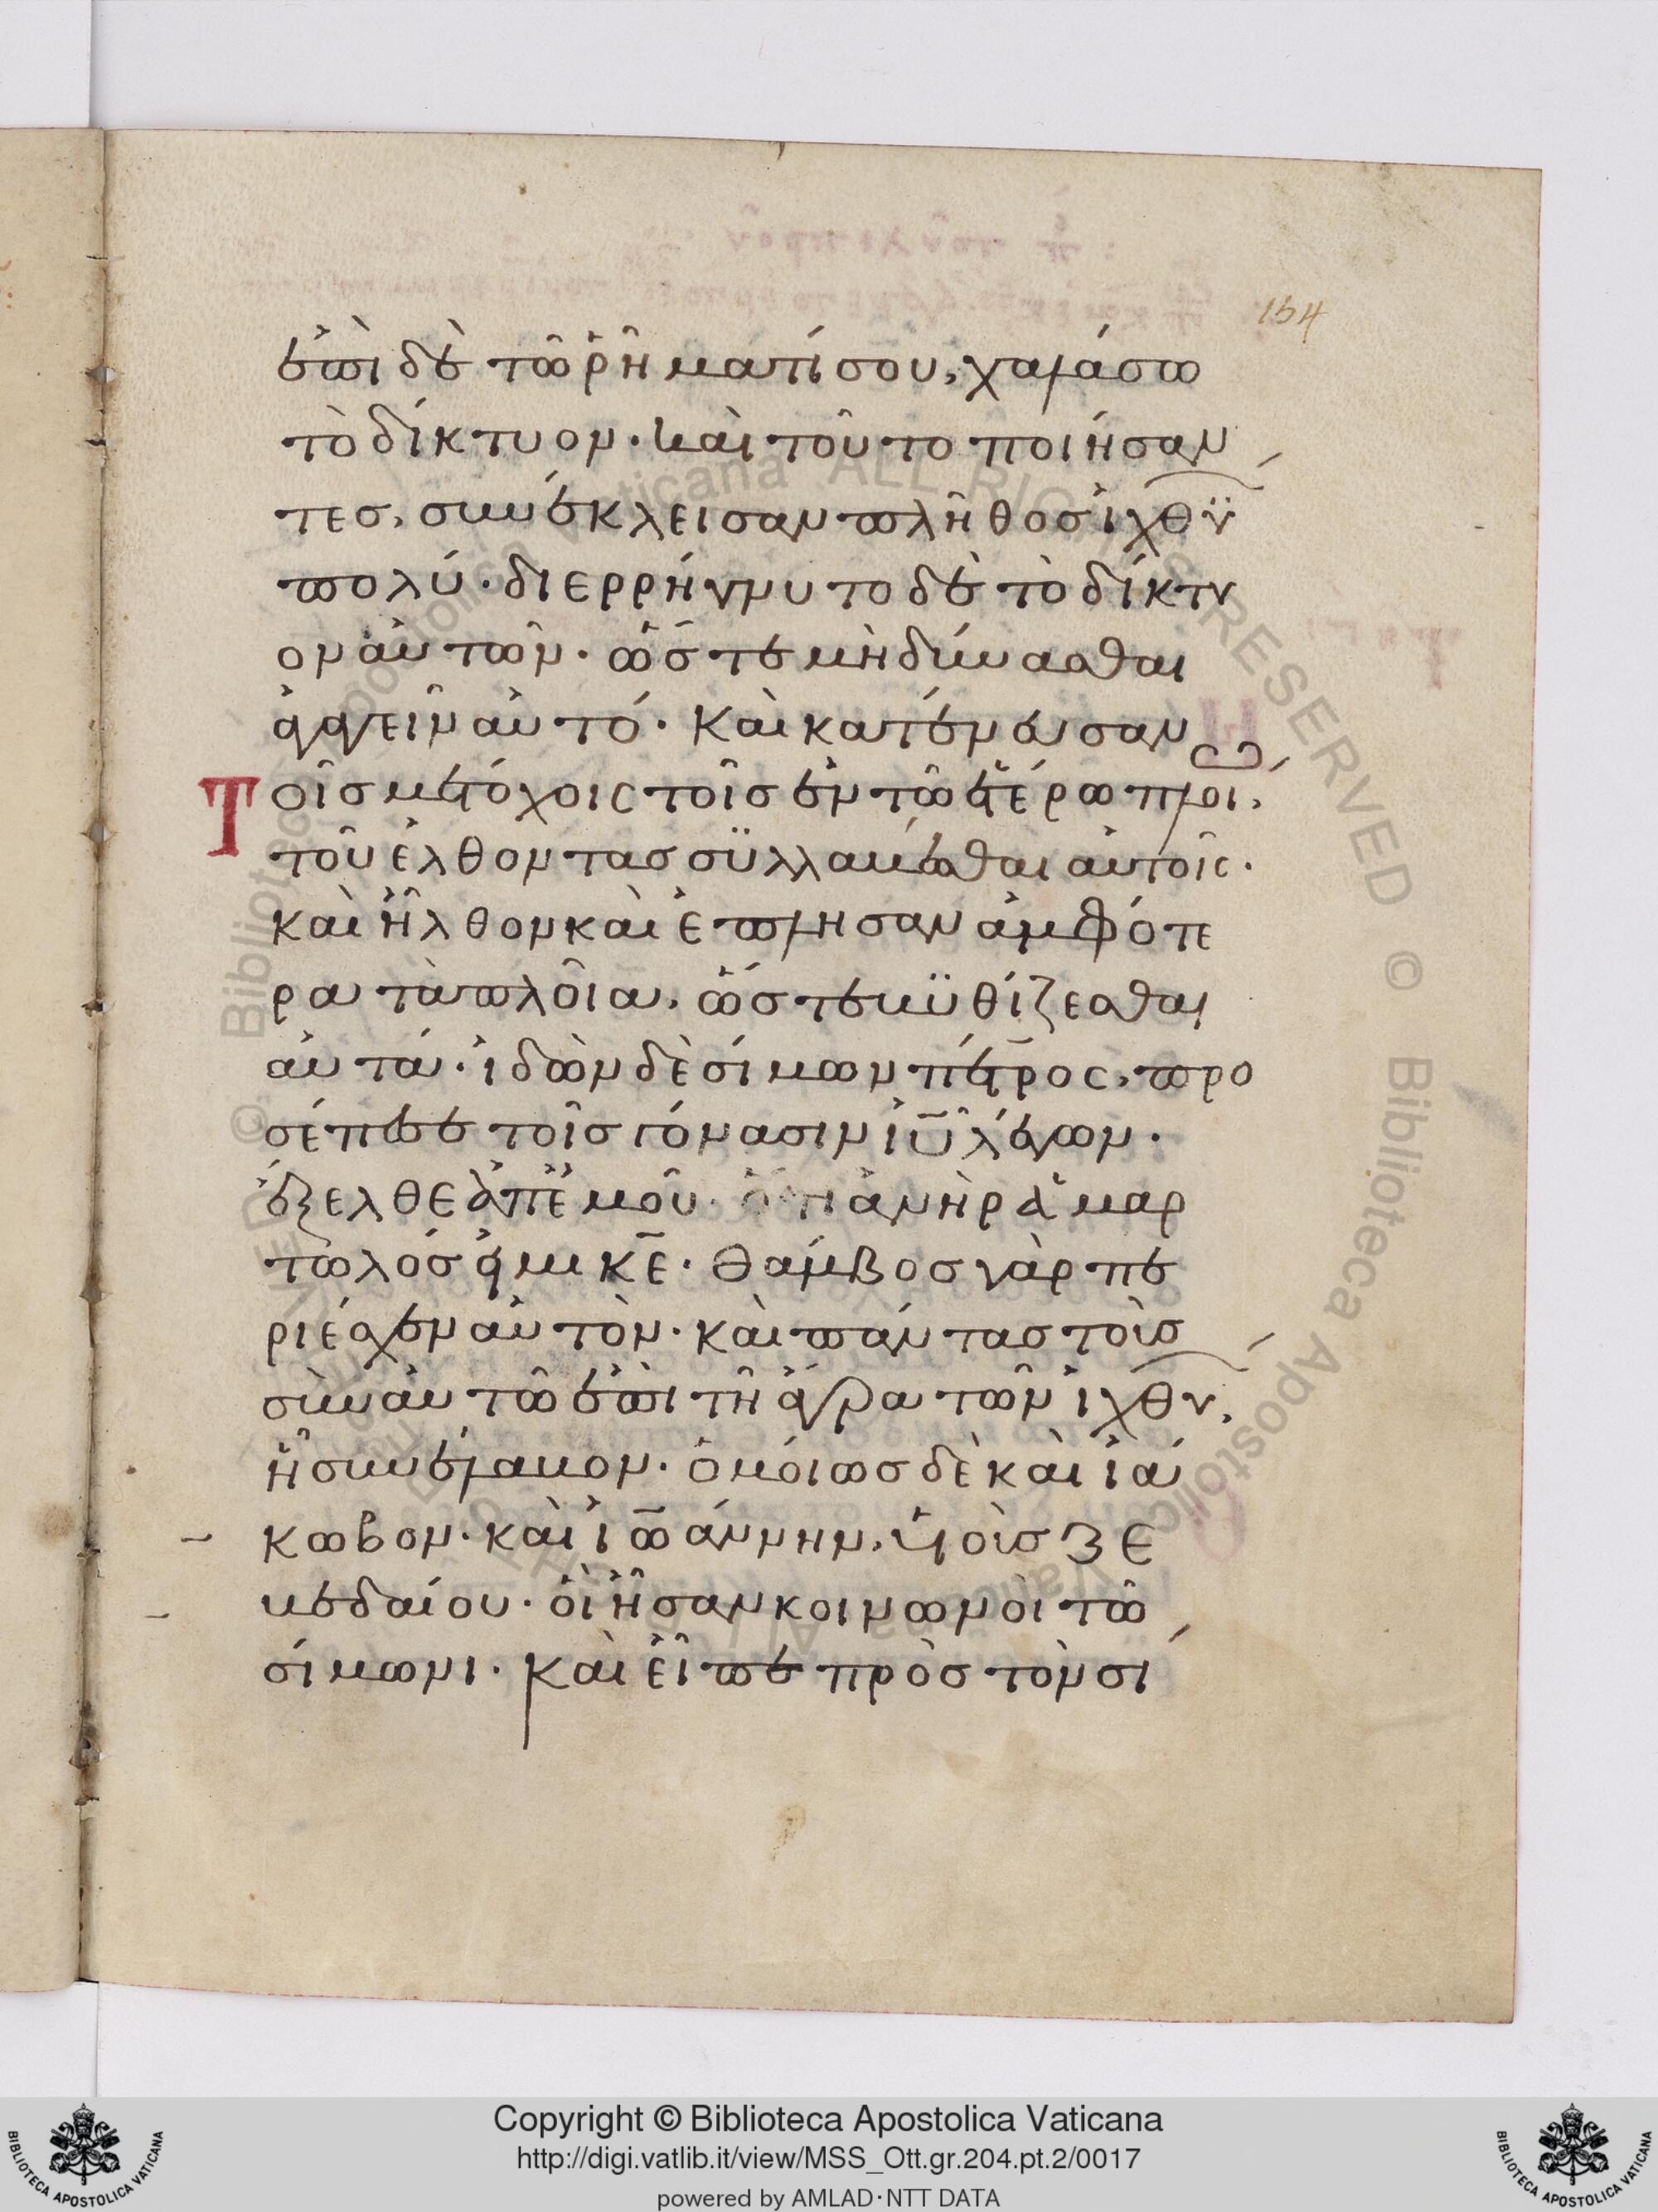 154
ἐπὶ δὲ τῶ ῥήματί σου, χαλάσω
τὸ δίκτυον· καὶ τοῦτο ποιήσαν
τες, συνέκλεισαν πλῆθος ἰχθύ
πολύ· διερρήγνυτο δὲ τὸ δίκτυ
ον αὐτῶν· ὥστε μὴ δύνασθαι
ἀγαγεῖν αὐτό· Καὶ κατένευσαν
Τοῖς μετόχοις τοῖς ἐν τῶ ἑτέρω πλοι,
τοῦ ἐλθόντας συλλαμβέσθαι αὐτοῖς·
καὶ ἦλθον καὶ ἔπλησαν ἀμφότε
ρα τὰ πλοῖα, ὥστε βυθίζεσθαι
αὐτά· ἰδὼν δὲ σίμων πέτρος, προ
σέπεσε τοῖς γόνασιν ἰῦ λέγων·
ἔξελθε ἀπ' ἐμοῦ· ὅτι ἀνὴρ ἁμαρ
τωλός εἰμι κ̅ε̅· Θάμβος γὰρ πε
ριέσχεν αὐτὸν· καὶ πάντας τοὺς
σὺν αὐτῶ ἐπὶ τῆ ἄγρα τῶν ἰχθύ,
ἧ συνέλαβον· ὁμοίως δὲ καὶ ἰά
κωβον· καὶ ἰωάννην, υἱοὺς ζε
βεδαίου· οἳ ἦσαν κοινωνοὶ τῶ
σίμωνι· καὶ εἶπε πρὸς τὸν σί
© Biblioteca Apostolica Vaticana ALL RIGHTS RESERVED
Copyright © Biblioteca Apostolica Vaticana
http://digi.vatlib.it/view/MSS_Ott.gr.204.pt.2/0017
powered by AMLAD·NTT DATA
BIBLIOTECA APOSTOLICA VATICANA
BIBLIOTECA APOSTOLICA VATICANA